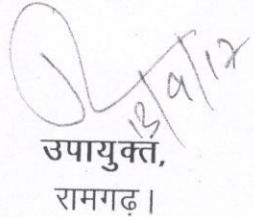 13/9/17
उपायुक्त,
रामगढ़।